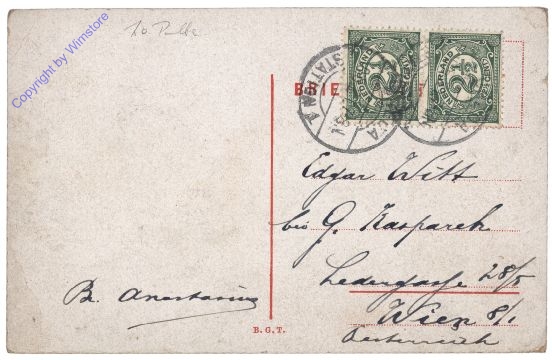 Copyright by Wimstore
BRIE
NEDERLAND
2½
CENT
NEDERLAND
2½
CENT
STATION
Edgar Witt
bei G. Kasparek
Ledergasse 28/5
Wien 8/1
Oesterreich
B. Anastasius
B.G.T.